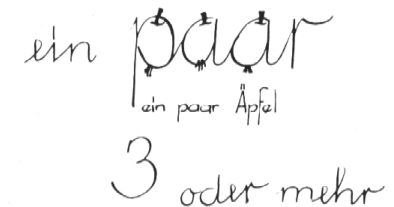 ein paar
ein paar Äpfel
3 oder mehr